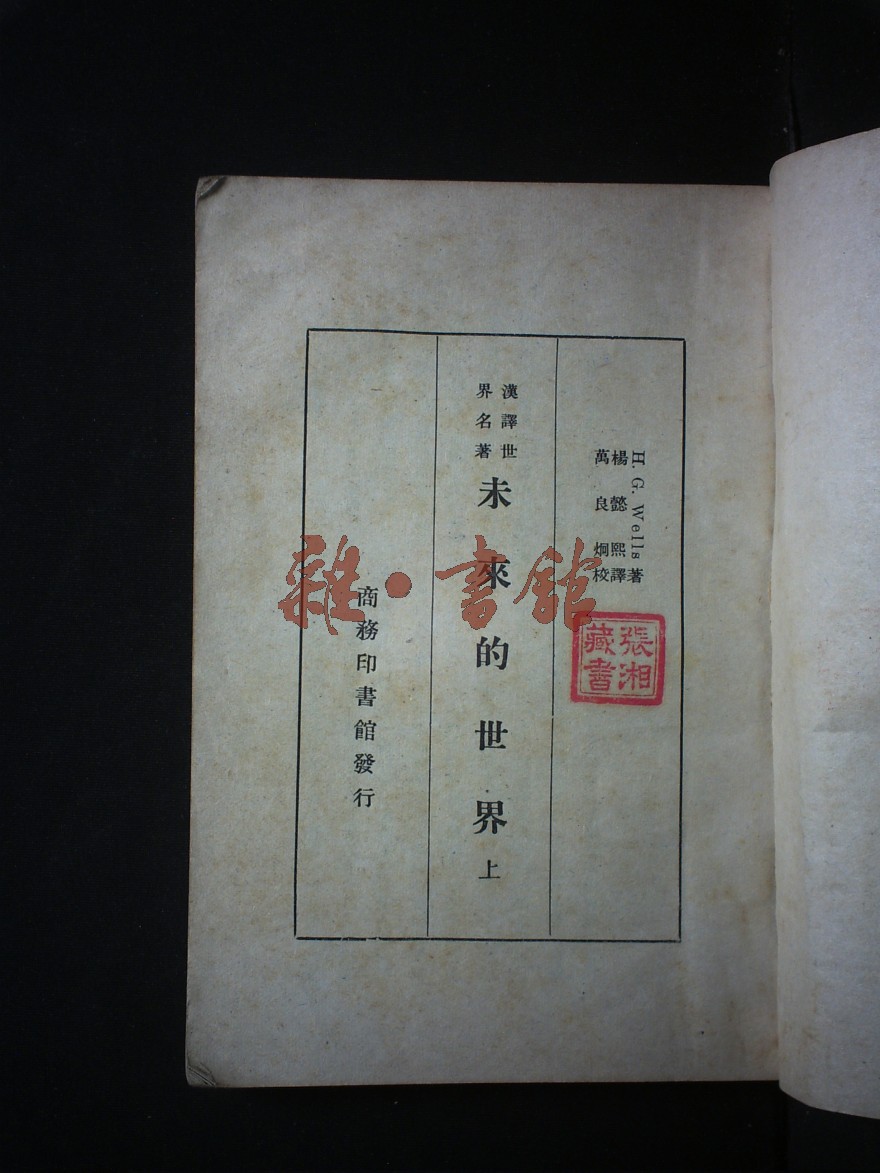 H. G. Wells 著
楊懿熙譯
萬良炯校
漢譯世
界名著
未來的世界 上
商務印書館發行
張湘
藏書
雜·書館